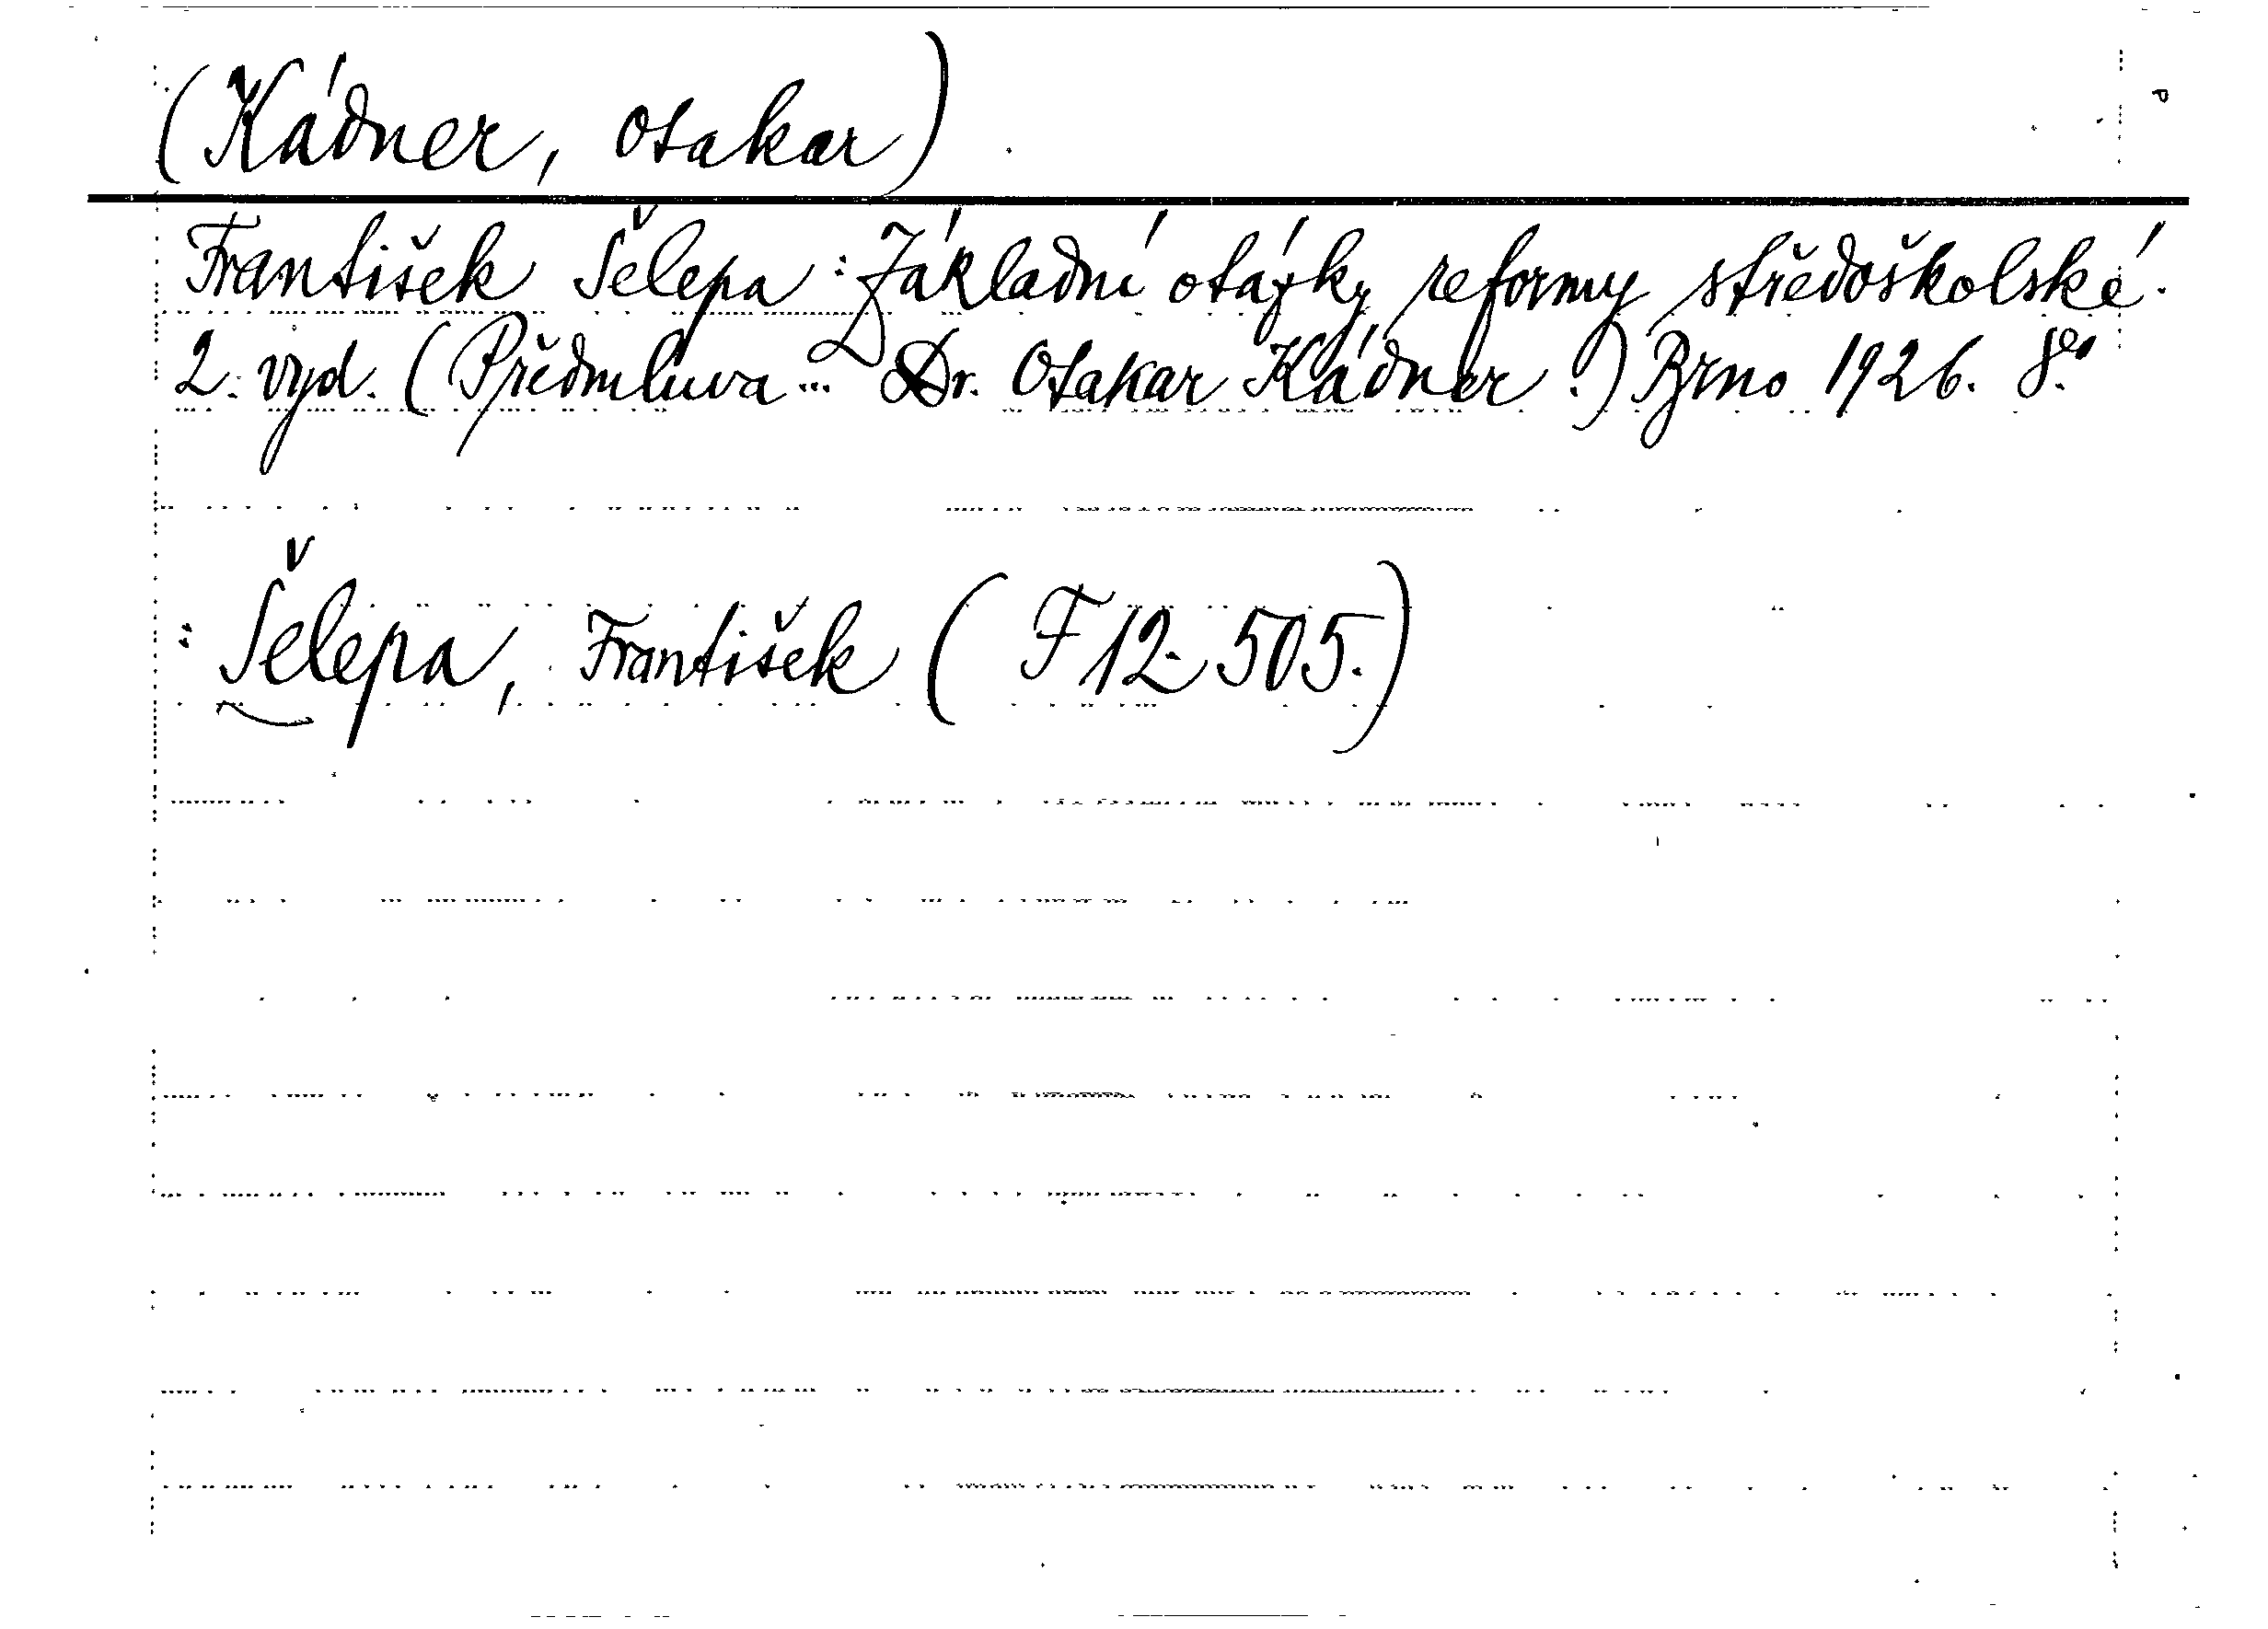 (Kádner, Otakar)
František Šelepa: Základní otázky reformy středoškolské.
2. vyd. (Předmluva... Dr. Otakar Kádner.) Brno 1926. 8°.
: Šelepa, František (F 12.505.)